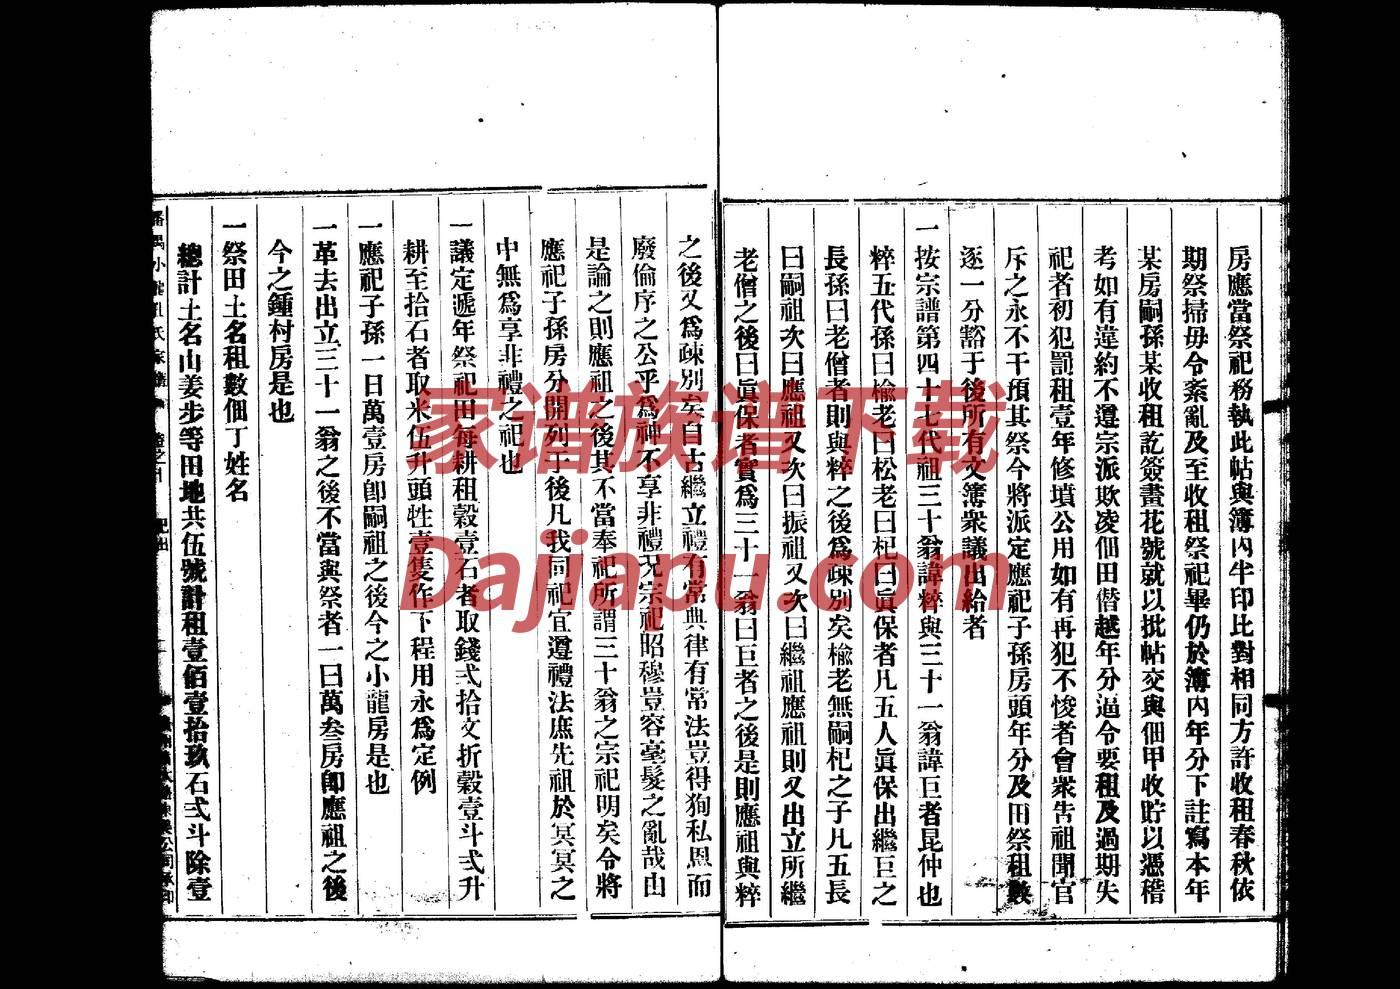 房應當祭祀務執此帖與簿內半印比對相同方許收租春秋依
期祭掃毋令紊亂及至收租祭祀畢仍於簿內年分下註寫本年
某房嗣孫某收租訖簽畫花號就以批帖交與佃甲收貯以憑稽
考如有違約不遵宗派欺凌佃田僭越年分逼令要租及過期失
祀者初犯罰租壹年修墳公用如有再犯不悛者會衆吿祖聞官
斥之永不干預其祭今將派定應祀子孫房頭年分及田祭租數
逐一分豁于後所有文簿衆議出給者
一按宗譜第四十七代祖三十翁諱粹與三十一翁諱巨者昆仲也
粹五代孫曰楡老曰松老曰杞曰眞保者凡五人眞保出繼巨之
長孫曰老僧者則與粹之後爲疎別矣楡老無嗣杞之子凡五長
曰嗣祖次曰應祖又次曰振祖又次曰繼祖應祖則又出立所繼
老僧之後曰眞保者實爲三十一翁曰巨者之後是則應祖與粹
之後又爲疎別矣自古繼立禮有常典律有常法豈得狥私恩而
廢倫序之公乎爲神不享非禮况宗祀昭穆豈容毫髮之亂哉由
是論之則應祖之後其不當奉祀所謂三十翁之宗祀明矣今將
應祀子孫房分開列于後凡我同祀宜遵禮法庶先祖於冥冥之
中無爲享非禮之祀也
一議定遞年祭祀田每耕租穀壹石者取錢弍拾文折穀壹斗弍升
耕至拾石者取米伍升頭牲壹隻作下程用永爲定例
一應祀子孫一曰萬壹房卽嗣祖之後今之小龍房是也
一革去出立三十一翁之後不當與祭者一曰萬叁房卽應祖之後
今之鍾村房是也
一祭田土名租數佃丁姓名
總計土名山姜步等田地共伍號計租壹佰壹拾玖石弍斗除壹
家谱族谱下载
Dajiapu.com